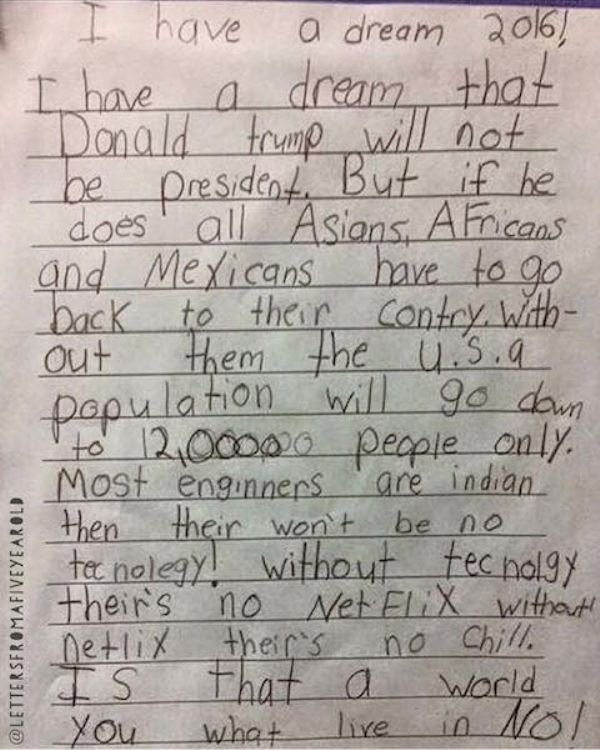 I have a dream 2016!
I have a dream that
Donald trump will not
be president. But if he
does all Asians, AFricans
and Mexicans have to go
back to their contry. With-
out them the u.s.a
population will go down
to 12,000000 people only.
Most enginners are indian
then their won't be no
tecnolegy! without tecnolgy
their's no NetFliX without
netlix their's no Chill.
IS that a world
you what live in NO!
@LETTERSFROMAFIVEYEAROLD